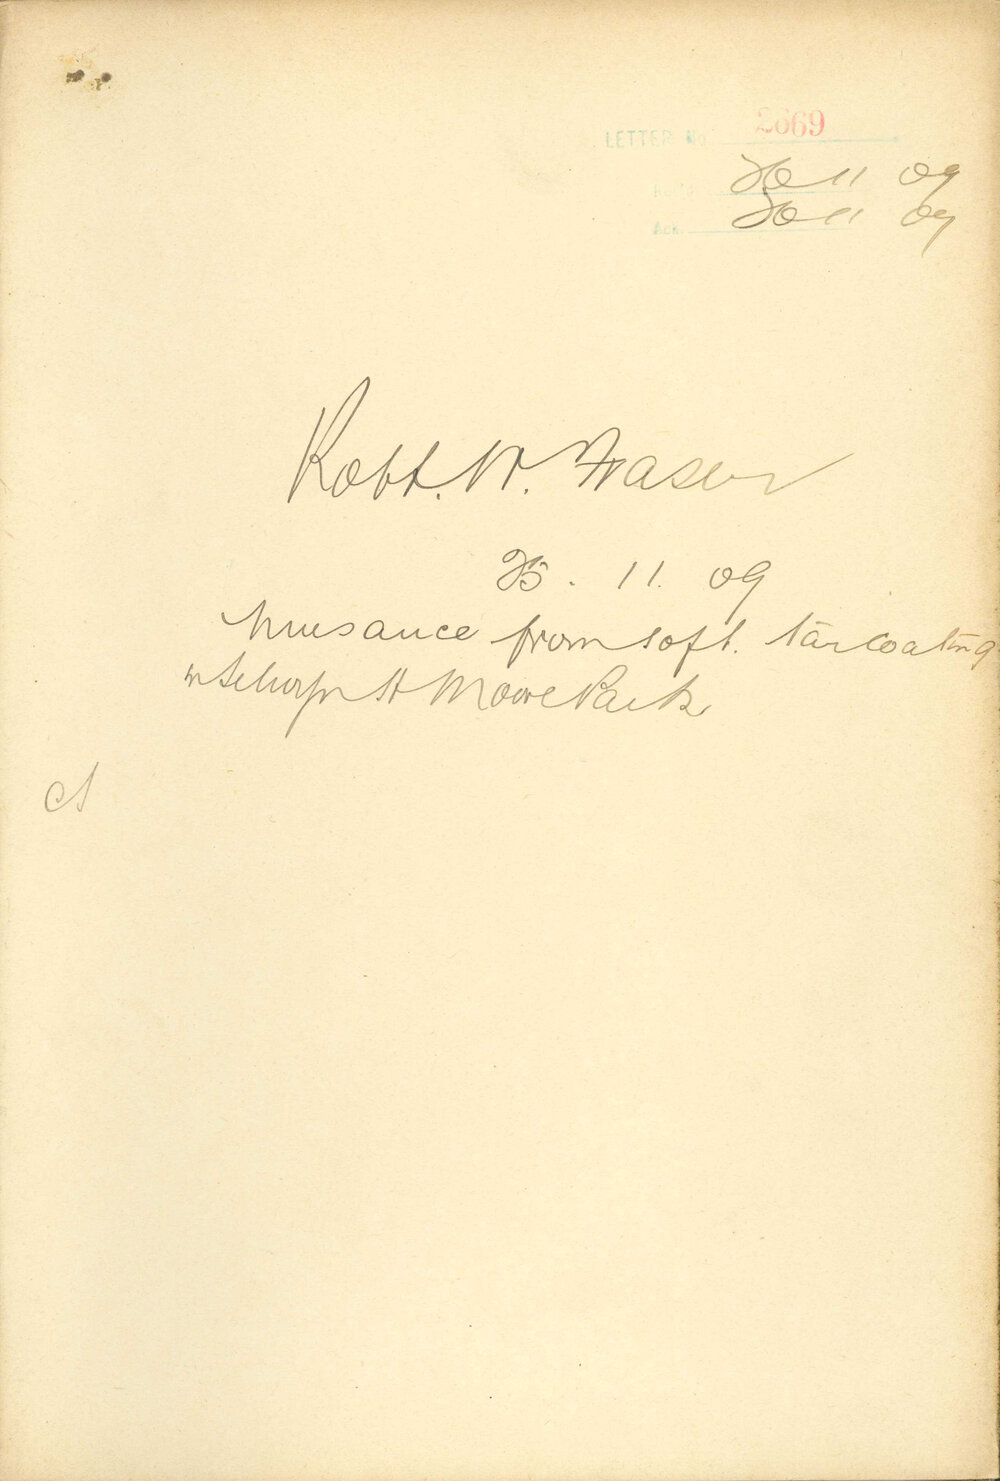 LETTER No 2669
Rec'd 26 11 09
Ack. 26 11 09
Robt. W. Fraser
25. 11. 09
Nuisance from soft. tarcoating
in St Moore Park